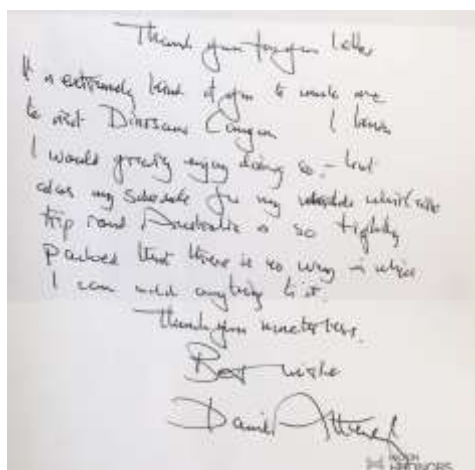 Thank you for your letter
It is extremely kind of you to invite me
to visit Dinosaur Canyon I know
I would greatly enjoy doing so – but
alas my schedule for my whistle
trip round Australia is so tightly
packed that there is no way in which
I can add anything to it.
Thank you nonetheless.
Best wishes
David Attenborough
HONORS